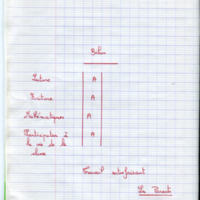 Bilan
Lecture A
Ecriture A
Mathématiques A
Participation à A
la vie de la
classe
Travail satisfaisant
Les Parents